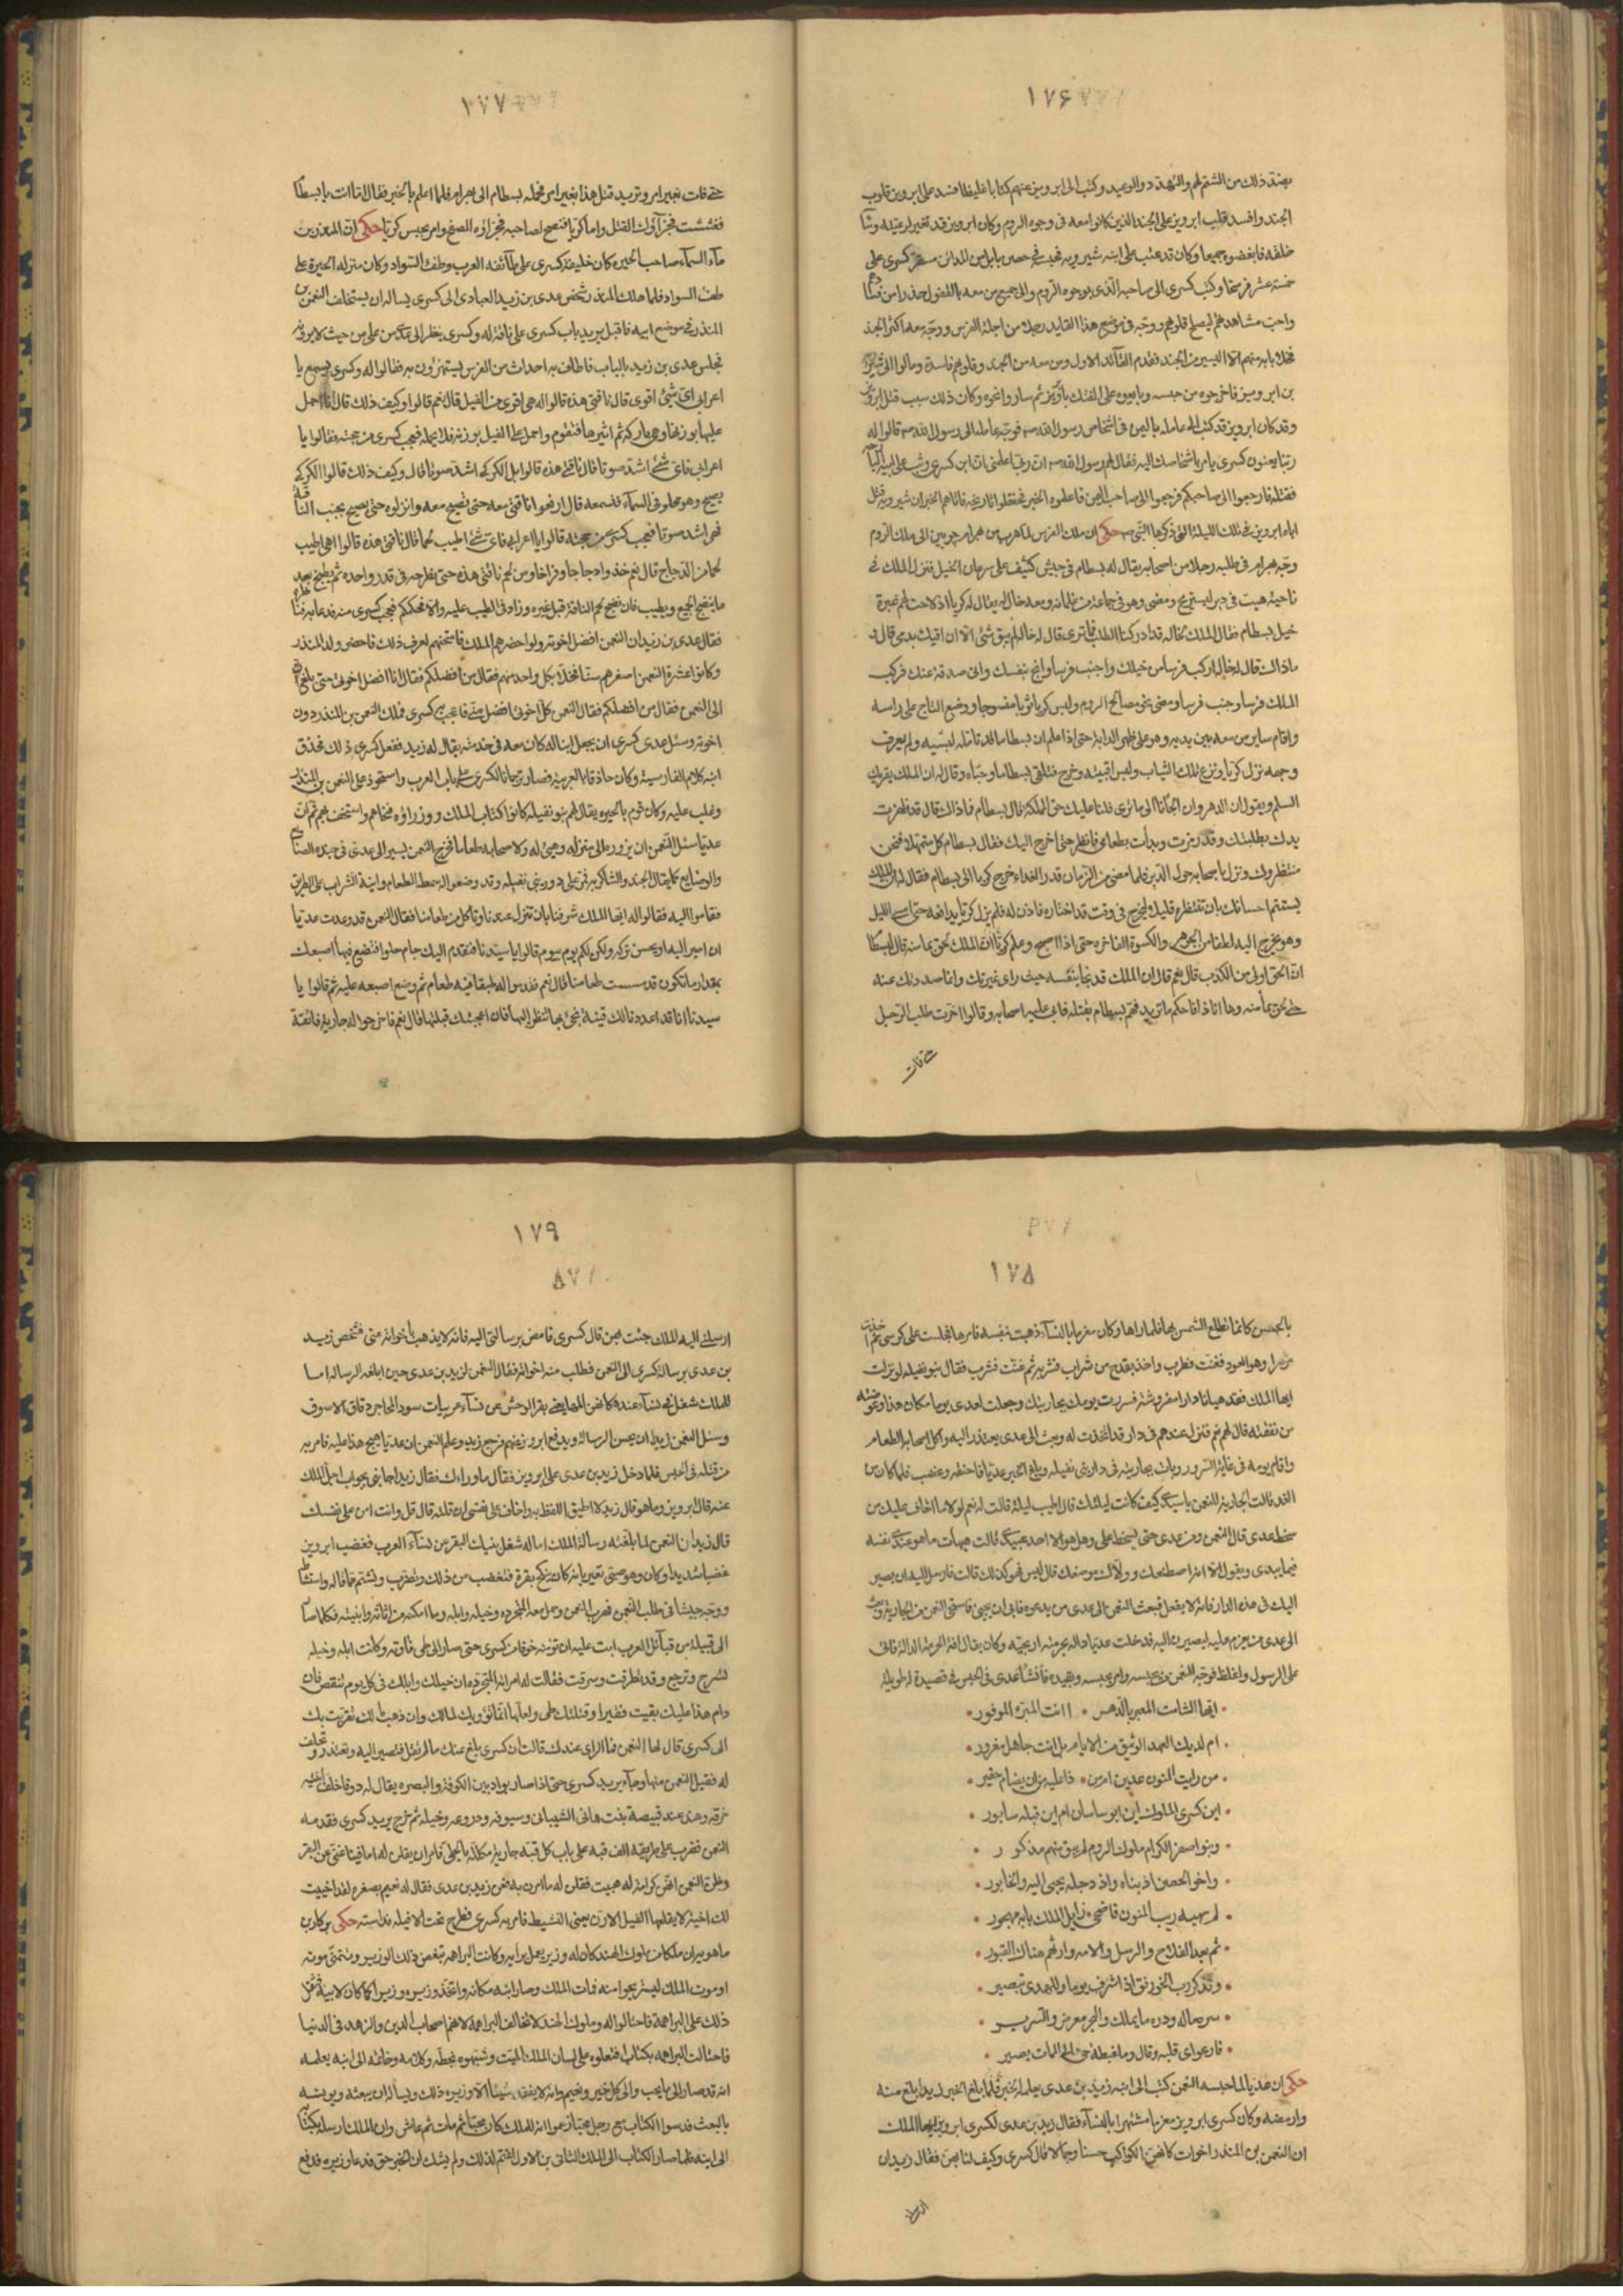 ١٧۶
بضد ذلك من الشتم لهم والتهدد والوعيد وكتب الى ابرويز عنهم كتابا غليظا فسد على ابرويز قلوب
الجند وافسد قلب ابرويز على الجند الذين كانوا معه فى وجوه الروم وكان ابرويز قد تغير لرعيته
خلقه فابغضوه جميعا وكان قد عتب على ابنه شيرويه فى حصن بابل من المدائن مستقر كسرى على
خمسة عشر فرسخا وكتب كسرى الى صاحبه الذى بوجوه الروم والى جميع من معه بالقفول حذرا من
واحب مشاهدهم ليصلح قلوبهم ووجه فى موضع هذا القايد رجلا من اجلة الفرس ووجه معه اكثر الجند
بابه منهم الا اليسير من الجند فقدم القائد الاول ومن معه من الجند وقلوبهم فاسدة ومالوا الى
بن ابرويز فاخرجوه من حبسه وبايعوه على الفتك ثم ساروا نحوه وكان ذلك سبب قتل ابرويز
وقد كان ابرويز قد كتب الى عامله باليمن فى اشخاص رسول الله صه فوجه عامله الى رسول الله صه قالوا له
ربنا يعنون كسرى يامر باشخاصك اليه فقال لهم رسول الله صه ان ربى اعلمنى ان ابن كسرى وثب على ابيه
فقتله فارجعوا الى صاحبكم فرجعوا الى صاحب اليمن فاعلموه الخبر فحفظوا تاريخه فاتاهم الخبر ان شيرويه قتل
اباه ابرويز فى تلك الليلة التى ذكرها النبى صه حكى ان ملك الفرس لما هرب من بهرام جوبين الى ملك الروم
وجه بهرام فى طلبه رجلا من اصحابه يقال له بسطام فى جيش كثيف على سرعان الخيل فنزل الملك فى
ناحية هيت فى دير ليستريح ومضى وهو فى جماعة من غلمانه ومعه خال له يقال له كريا اذ لاحت لهم غبرة
خيل بسطام فقال الملك لخاله قد ادركنا الطلب فما ترى قال له خاله لم يبق شئ الا ان اقيك بدمى قال و
ماذاك قال له خاله اركب فرسا من خيلك واجنب فرسا وانج بنفسك وانى صدقة عنك فركب
الملك فرسا وجنب فرسا ومضى نحو مصالح الروم ولبس كريا ثوبا منسوجا ووضع التاج على راسه
واقام ساير من معه بين يديه وهو على ظهر الدابة حتى اذا علم ان بسطاما قد تامله لبسه ولم يعرف
وجهه نزل كريا ونزع تلك الثياب ولبس اقبيته وخرج فتلقى بسطاما وحياه وقال له ان الملك يقريك
السلم ويقول ان الدهر وان الجأنا الى ما ترى فلنا عليك حق المملكة قال بسطام فماذاك قال قد ظفرت
يدك بطلبتك وقد رمزت وبدأت بطعامى فانظر حتى اخرج اليك فقال بسطام كل متمهلا فنحن
منتظروك ونزل باصحابه حول الدير فلما مضى من الزمان قدر الغداء خرج كريا الى بسطام فقال له ان الملك
يستتم احسانك بان تنتظره قليلا ليخرج فى وقت قد اختاره فاذن له فلم يزل كريا يدافعه حتى امسى الليل
وهو يخرج اليه لطفا من الجوهر والكسوة الفاخره حتى اذا اصبح وعلم كريا ان الملك نحى بمأمنه قال لبسطام
ان الحق اولى من الكذب قال نعم قال ان الملك قد نجا بنفسه حيث راى غبرتك وانما صددتك عنه
حتى مأمنه وها انا ذا فاحكم ما تريد فهم بسطام بقتله فابى عليه اصحابه وقالوا اخرت طلب الرجل
حتى فات
١٧٧
حتى فات بغير امر وتريد قتل هذا بغير امر فحمله بسطام الى بهرام فلما اعلم بالخبر فقال اما انت يا بسطام
فغششت فجزاؤك القتل واما كريا فنصح لصاحبه فجزاؤه الصفح وامر بحبس كريا حكى ان المنذر بن
ماء السماء صاحب الحيره كان خليفة كسرى على ما كنفه العرب وطف السواد وكان منزله الحيرة على
طف السواد فلما هلك المنذر شخص عدى بن زيد العبادى الى كسرى يساله ان يستخلف النعمن بن
المنذر فى موضع ابيه فاقبل يريد باب كسرى على ناقة له وكسرى ينظر الى عدى من على من حيث لا يرونه
فجلس عدى بن زيد بالباب فاطاف به احداث من الفرس يستهزؤن به فقالوا له وكسرى يسمع يا
اعرابى اى شئ اقوى قال ناقتى هذه قالوا له هى اقوى من الفيل قال نعم قالوا وكيف ذلك قال انا احمل
عليها بوزنها وهى باركة ثم اثيرها فتقوم واحمل على الفيل بوزنه فلا يحمله فعجب كسرى من حجته فقالوا يا
اعرابى فاى شئ اشد صوتا قال ناقتى هذه قالوا بل الكركى اشد صوتا قال وكيف ذلك قالوا الكركى
يصيح وهو محلق فى السماء فنسمعه قال ارفعوا ناقتى معه حتى تصيح معه وانزلوه حتى يصيح بجنب الناقة
فهى اشد صوتا فعجب كسرى من حجته قالوا يا اعرابى فاى شئ اطيب لحما قال ناقتى هذه قالوا اهى اطيب
لحما من الدجاج قال نعم خذوا دجاجا وفراخا ومن لحم ناقتى هذه حتى نطرحه فى قدر واحده ثم يطبخ بعد
ما ينضج الجميع ويطيب فان نضج لحم الناقة قبل غيره وزاد فى الطيب عليه والا فحكمكم فعجب كسرى منه فدعا به
فقال عدى بن زيد ان النعمن افضل اخوته ولو احضرهم الملك فامتحنهم لعرف ذلك فاحضر ولد المنذر
وكانوا عشرة النعمن اصغرهم سنا فخلا بكل واحد منهم فقال من افضلكم فقال انا افضل اخوتى حتى بلغ
الى النعمن فقال من افضلكم فقال النعمن كل اخوتى افضل منى فاعجب كسرى فملك النعمن بن المنذر دون
اخوته وسئل عدى كسرى ان يجعل ابنا له كان معه فى خدمته يقال له زيد ففعل كسرى ذلك فحذق
ابنه كلام الفارسية وكان حاذقا بالعربية فصار ترجمانا لكسرى على باب العرب واستحوذ على النعمن بن المنذر
وغلب عليه وكان قوم بالحيره يقال لهم بنو نفيله كانوا كتاب الملك ووزراؤه فنحاهم واستخف بهم ثم ان
عديا سئل النعمن ان يزوره الى منزله وهيئ له ولاصحابه طعاما فخرج النعمن يسير الى عدى فى جنده
كما يقال الجند والشاكريه فمر على دور بنى نفيله وقد وضعوا له سمط الطعام وانية الشراب على الطريق
فقاموا اليه فقالوا له ايها الملك شرفنا بان تنزل عندنا وتاكل من طعامنا فقال النعمن قد وعدت عديا
ان اسير اليه ولا يحسن تركه ولكن لكم يوم بيوم قالوا يا سيدنا فنقدم اليك جام حلوا فتضع فيها اصبعك
بمقدار ما تكون قد مسست طعامنا قال نعم فقدموا له طبقا فيه طعام ثم وضع اصبعه عليه ثم قالوا يا
سيدنا انا قد اعددنا لك قينة نجئ بها لتنظر اليها فان اعجبتك قبلتها قال نعم فاخرجوا له جارية فائقة
١٧٨
بالحسن كانما تطلع الشمس بها فلما راها وكان مغرما بالنساء ذهبت نفسه فامرها فجلست على كرسى ثم
مزهرا وهو العود فغنت فطرب واخذ بقدح من شراب فشربه ثم غنت فشرب فقال بنو نفيله لو نزلت
ايها الملك فقد هيانا دارا مفروشة فسررت يومك بجاريتك وجعلت لعدى يوما مكان هذا
من نفقته قال لهم نعم فنزل عندهم فى دار قد اتخذت له وبعث الى عدى يعتذر اليه واكل اصحابه الطعام
واقام يومه فى غاية السرور وبات بجاريته فى دار بنى نفيله وبلغ الخبر عديا فاحنقه وغضب فلما كان من
الغد قالت الجارية للنعمن يا سيدى كيف كانت ليلتك قال اطيب ليلة قالت له نعم لولا ما اخاف عليك من
سخط عدى قال النعمن ومن عدى حتى يسخط على وهل هو الا احد عبيدى قالت هيهات ما هو عند نفسه
فيما يبدى ويقول الا انه اصطنعك وولاك موضعك قال ليس نحو كذلك قالت فارسل اليه ان يصير
اليك فى هذه الدار فانه لا يفعل فبعث النعمن الى عدى من يدعوه فابى ان يجئ فاستحى النعمن من الجارية
الى عدى من يعزم عليه ليصيرن اليه فدخلت عديا دالة بحرمته
على الرسول واغلظ فوجه النعمن من يحبسه وامر بحبسه وتقييده فانشأ عدى فى الحبس فى قصيدة له طويلة
ايها الشامت المعير بالدهر • اانت المبرء الموفور
ام لديك العهد الوثيق من الايام بل انت جاهل مغرور
من رايت المنون عدين ام من • ذا عليه من ان يضام خفير
اين كسرى الملوك اين ابو ساسان ام اين قبله سابور
وبنوا اصفر الكرام ملوك الروم لم يبق منهم مذكور
واخو الحصن اذ بناه واذ دجله يجبى اليه والخابور
لم يهبه ريب المنون فاضحى زايل الملك بابه مهجور
ثم بعد الفلاح والرسل والامه وارتهم هناك القبور
وتذكر رب الخورنق اذ اشرف يوما وللهدى تبصير
سره ماله ودره ما يملك والبحر معرض والسرير
فارعوى قلبه وقال وما غبطة حى الى الممات يصير
حكى ان عديا لما حبسه النعمن كتب الى ابنه زيد بن عدى يعلمه الخبر فلما بلغ الخبر لزيد ابلغ منه
وارمضه وكان كسرى ابرويز مغرما مشتهرا بالنساء فقال زيد بن عدى لكسرى ابرويز ايها الملك
ان النعمن بن المنذر اخوات كانهن الكواكب حسنا وجمالا قال كسرى وكيف لنا بهن فقال زيد ان
ارسلنى
١٧٩
ارسلنى اليه الملك جئت بهن قال كسرى فامض برسالتى اليه فانه لا يذهب باخواته عنى فشخص زيد
بن عدى برسالة كسرى الى النعمن فطلب منه اخواته فقال النعمن لزيد بن عدى حين ابلغه الرسالة اما
للملك شغل فى نساء عنده كانهن المها يعنى بقر الوحش عن نساء عربيات سود المحاجر دقاق الاسوق
وسئل النعمن زيدا ان يحسن الرسالة ويدفع ابرويز عنهم فرجع زيد وعلم النعمن ان عديا هيج هذا عليه فامر به
من قتله فى الحبس فلما دخل زيد بن عدى على ابرويز فقال ما وراءك فقال زيد اجابنى بجواب اجل الملك
عنه قال ابرويز وما هو قال زيد لا اطيق اللفظ به واخاف على نفسى ان قلته قال قل وانت امن على نفسك
قال زيد ان النعمن لما بلغته رسالة الملك اما له شغل بنيك البقر عن نساء العرب فغضب ابرويز
غضبا شديدا وكان وهو صبى تغير بانه كان ينكح بقرة فتغضب من ذلك وتضرب وتشتم قائله
ووجه جيشا فى طلب النعمن فهرب النعمن وحمل معه المتجرده وخيله وابله وما امكنه من اثاثه وابنيته فكلما صار
الى قبيلة من قبائل العرب ابت عليه ان تؤيه خوفا من كسرى حتى صار الى طى فاوته وكانت ابله وخيله
تسرح وترجع وقد نطرقت وسرقت فقالت له امراته المتجرده ان خيلك وابلك فى كل يوم تنقص فان
دام هذا عليك بقيت فقيرا وقتلتك طى وا انما تؤويك لمالك وان ذهب مالك تقربت بك
الى كسرى قال لها النعمن فما الراى عندك قالت ان كسرى بلغ عنك ما لم تقل فتصير اليه وتعتذر وتحلف
له فقبل النعمن منها وجاء يريد كسرى حتى اذا صار بواد بين الكوفة والبصره يقال له ذو قار خلف ابنته
خرقه وهند عند قبيصة بنت هانى الشيبانى وسيوفه ودروعه وخيله ثم خرج يريد كسرى فقدمه
النعمن فضرب على طريقه الف قبه على باب كل قبه جارية مكللة بالحلى فامر ان يقلن له اما فينا غنى عن البقر
وظن النعمن انهن كرامة له هيبت فقلن له ما امرن به فمن زيد بن عدى فقال له نعيم بصغره لقد اخبيت
لك اخية لا يقلعها الفيل الارن يعنى النشيط فامر به كسرى فطرح تحت الافيله فداسته حكى بركارن
ماهويران ملكا من ملوك الهند كان له وزير يعمل برايه وكانت البراهمه تبغض ذلك الوزير وتتمنى موته
او موت الملك ليستريحوا منه فمات الملك وصار ابنه مكانه واتخذ وزيره وزيرا كما كان لابيه فثقل
ذلك على البراهمة فاحتالوا له وملوك الهند لا تخالف البراهمة لانهم اصحاب الدين والزهد فى الدنيا
فاحتالت البراهمه بكتاب افتعلوه على لسان الملك الميت وشبهوه بخطه وكلامه وخاتمه الى ابنه يعلمه
انه قد صار الى ما يحب والى كل خير ونعيم وانه لا يفقد شيئا الا وزيره ذلك ويساله ان يبعثه ويونسه
بالبعث فدسوا الكتاب مع رجل زعموا انه للملك كان ثم مات ثم عاش وان الملك ارسله بكتابه
الى ابنه فلما صار الكتاب الى الملك الثانى بن الاول اغتم لذلك ولم يشك ان الخبر حق فدعا وزيره فدفع